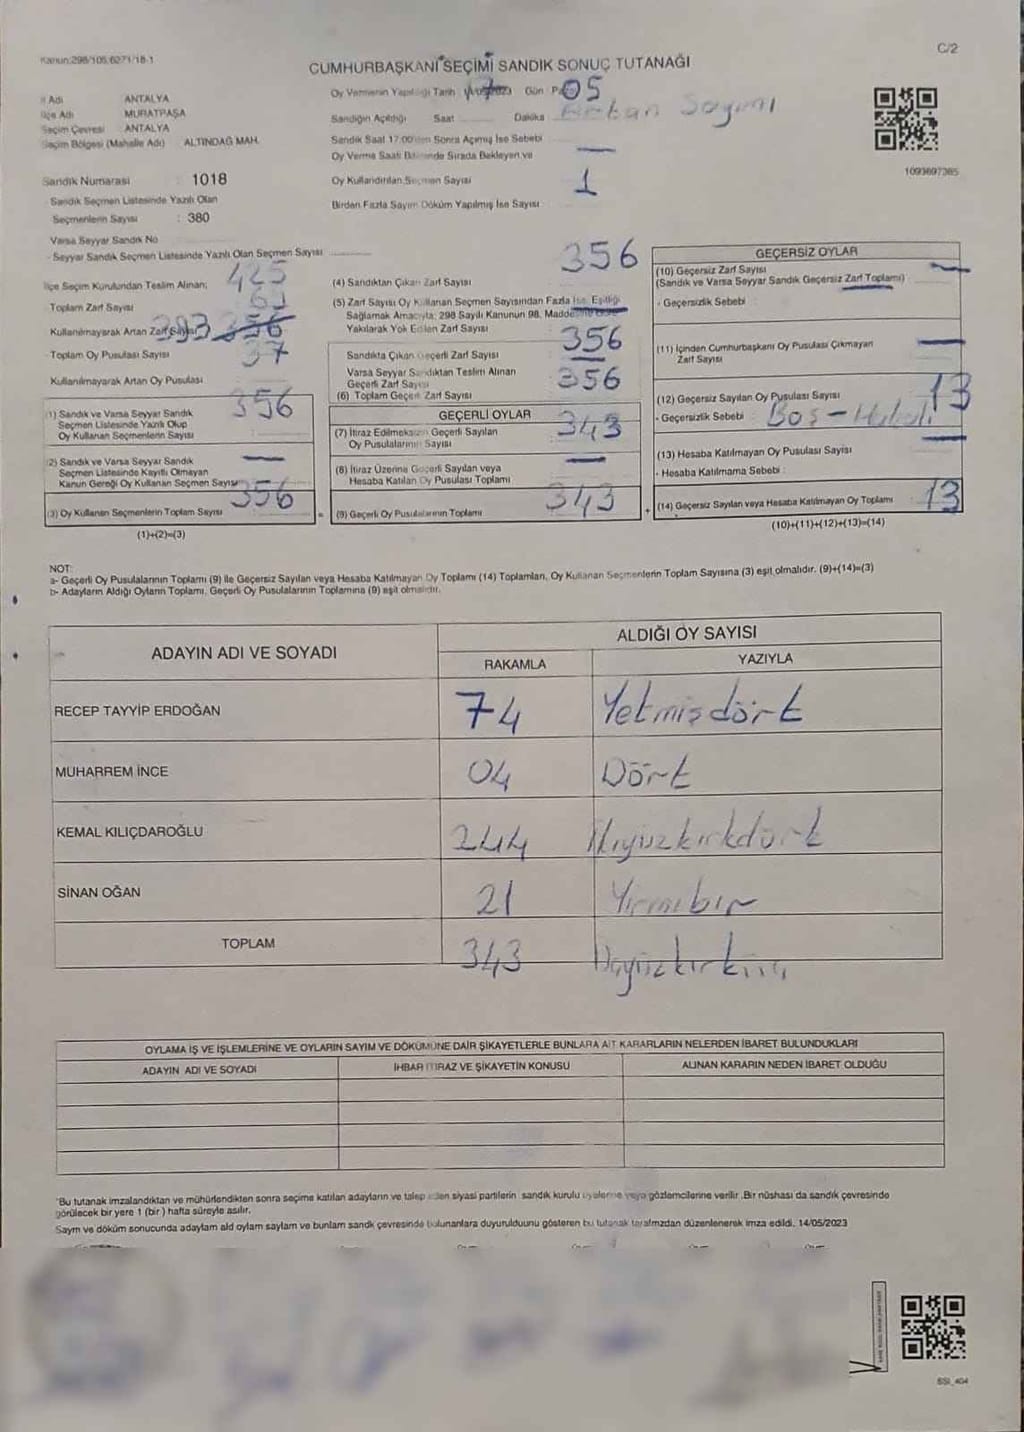 Kanun:298/105,6271/18-1
C/2
CUMHURBAŞKANI SEÇİMİ SANDIK SONUÇ TUTANAĞI
İl Adı ANTALYA
İlçe Adı MURATPAŞA
Seçim Çevresi ANTALYA
Seçim Bölgesi (Mahalle Adı) ALTINDAĞ MAH.
Sandık Numarası : 1018
Sandık Seçmen Listesinde Yazılı Olan
Seçmenlerin Sayısı : 380
Varsa Seyyar Sandık No
- Seyyar Sandık Seçmen Listesinde Yazılı Olan Seçmen Sayısı
İlçe Seçim Kurulundan Teslim Alınan;
Toplam Zarf Sayısı 425
Kullanılmayarak Artan Zarf Sayısı
Toplam Oy Pusulası Sayısı 393 356
Kullanılmayarak Artan Oy Pusulası 37
(1) Sandık ve Varsa Seyyar Sandık
Seçmen Listesinde Yazılı Olup
Oy Kullanan Seçmenlerin Sayısı 356
(2) Sandık ve Varsa Seyyar Sandık
Seçmen Listesinde Kayıtlı Olmayan
Kanun Gereği Oy Kullanan Seçmen Sayısı —
(3) Oy Kullanan Seçmenlerin Toplam Sayısı 356
(1)+(2)=(3)
Oy Vermenin Yapıldığı Tarih Gün 05
Sandığın Açıldığı Saat Dakika
Sandık Saat 17:00'den Sonra Açımış İse Sebebi
Oy Verme Saati Bitiminde Sırada Bekleyen ve —
Oy Kullandırılan Seçmen Sayısı
Birden Fazla Sayım Döküm Yapılmış İse Sayısı 1
(4) Sandıktan Çıkan Zarf Sayısı 356
(5) Zarf Sayısı Oy Kullanan Seçmen Sayısından Fazla İse, Eşitliği
Sağlamak Amacıyla; 298 Sayılı Kanunun 98. Maddesine Göre
Yakılarak Yok Edilen Zarf Sayısı —
Sandıkta Çıkan Geçerli Zarf Sayısı 356
Varsa Seyyar Sandıktan Teslim Alınan
Geçerli Zarf Sayısı —
(6) Toplam Geçerli Zarf Sayısı 356
GEÇERLİ OYLAR
(7) İtiraz Edilmeksizin Geçerli Sayılan
Oy Pusulalarının Sayısı 343
(8) İtiraz Üzerine Geçerli Sayılan veya
Hesaba Katılan Oy Pusulası Toplamı —
= (9) Geçerli Oy Pusulalarının Toplamı 343
1093697385
GEÇERSİZ OYLAR
(10) Geçersiz Zarf Sayısı —
(Sandık ve Varsa Seyyar Sandık Geçersiz Zarf Toplamı)
- Geçersizlik Sebebi : —
(11) İçinden Cumhurbaşkanı Oy Pusulası Çıkmayan
Zarf Sayısı —
(12) Geçersiz Sayılan Oy Pusulası Sayısı 13
- Geçersizlik Sebebi : Boş -
(13) Hesaba Katılmayan Oy Pusulası Sayısı —
- Hesaba Katılmama Sebebi :
+ (14) Geçersiz Sayılan veya Hesaba Katılmayan Oy Toplamı 13
(10)+(11)+(12)+(13)=(14)
NOT:
a- Geçerli Oy Pusulalarının Toplamı (9) ile Geçersiz Sayılan veya Hesaba Katılmayan Oy Toplamı (14) Toplamları, Oy Kullanan Seçmenlerin Toplam Sayısına (3) eşit olmalıdır. (9)+(14)=(3)
b- Adayların Aldığı Oyların Toplamı, Geçerli Oy Pusulalarının Toplamına (9) eşit olmalıdır.
ADAYIN ADI VE SOYADI ALDIĞI OY SAYISI
RAKAMLA YAZIYLA
RECEP TAYYİP ERDOĞAN 74 Yetmişdört
MUHARREM İNCE 04 Dört
KEMAL KILIÇDAROĞLU 244 İkiyüzkırkdört
SİNAN OĞAN 21 Yirmibir
TOPLAM 343 Üçyüzkırküç
OYLAMA İŞ VE İŞLEMLERİNE VE OYLARIN SAYIM VE DÖKÜMÜNE DAİR ŞİKAYETLERLE BUNLARA AİT KARARLARIN NELERDEN İBARET BULUNDUKLARI
ADAYIN ADI VE SOYADI İHBAR İTİRAZ VE ŞİKAYETİN KONUSU ALINAN KARARIN NEDEN İBARET OLDUĞU
"Bu tutanak imzalandıktan ve mühürlendikten sonra seçime katılan adayların ve talep eden siyasi partilerin sandık kurulu üyelerine veya gözlemcilerine verilir .Bir nüshası da sandık çevresinde
görülecek bir yere 1 (bir ) hafta süreyle asılır.
Sayım ve döküm sonucunda adayların aldı oyların sayları ve bunların sandık çevresinde bulunanlara duyurulduunu gösteren bu tutanak tarafımzdan düzenlenerek imza edildi. 14/05/2023
SSI_404